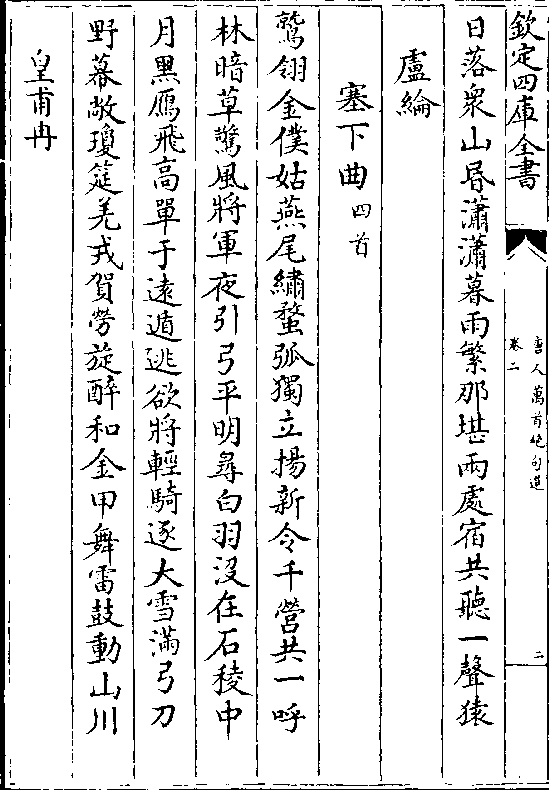 欽定四庫全書
唐人萬首絶句選
卷二
二
日落衆山昏瀟瀟暮雨繁那堪兩處宿共聽一聲猿
盧綸
塞下曲四首
鷲翎金僕姑燕尾繡蝥弧獨立揚新令千營共一呼
林暗草驚風將軍夜引弓平明尋白羽沒在石稜中
月黑鴈飛高單于遠遁逃欲將輕騎逐大雪滿弓刀
野幕敞瓊筵羌戎賀勞旋醉和金甲舞雷鼓動山川
皇甫冉